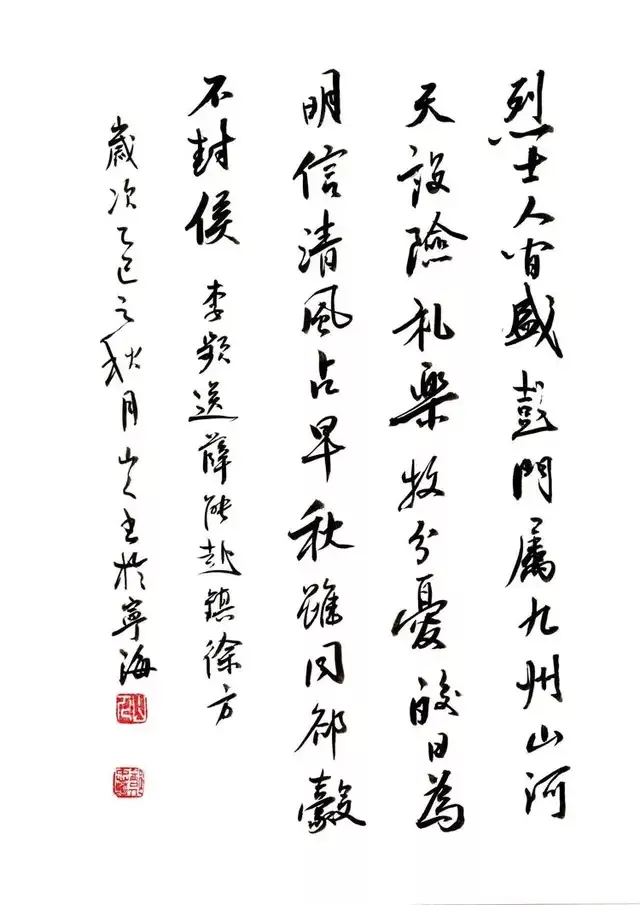 烈士人間盛彭門屬九州山河
天設險礼樂牧分憂皎日為
明信清風占早秋雖同郤縠
不封侯 李頻送薛能赴鎮徐方
歲次乙巳之秋月山人書於寧海